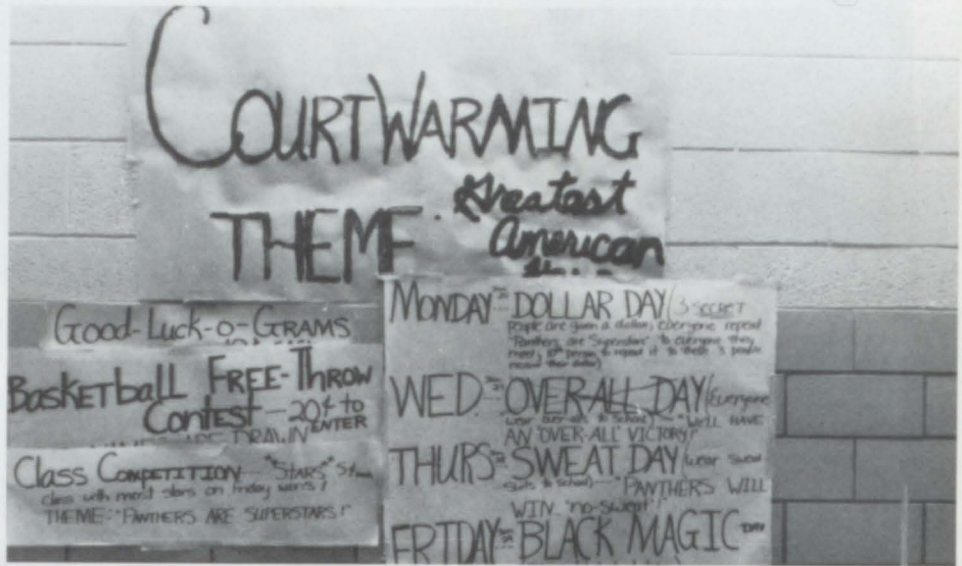 COURTWARMING
THEME: Greatest
American
GOOD-LUCK-O-GRAMS
BASKETBALL FREE-THROW
CONTEST — 20¢ to
ENTER
ARE DRAWN
CLASS COMPETITION — "STARS" 5¢
class with most stars on friday wins!
THEME: "PANTHERS ARE SUPERSTARS!"
MONDAY DOLLAR DAY (3 SECRET
People are given a dollar, everyone repeat
"Panthers are Superstars" to everyone they
meet, person to repeat it to these 3 people
WED OVER-ALL DAY (Everyone
wear over-alls to school) — "WE'LL HAVE
AN "OVER-ALL" VICTORY!"
THURS SWEAT DAY (wear sweat
suits to school) — "PANTHERS WILL
WIN "no-sweat"!
FRIDAY BLACK MAGIC DAY